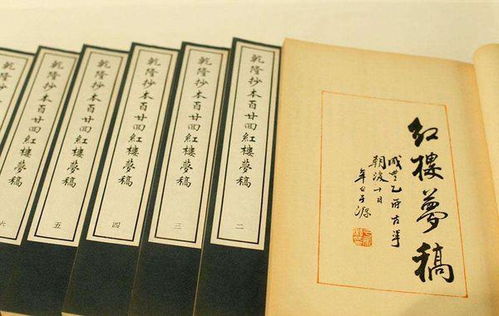 紅樓夢稿
咸豐乙卯古華
朝後十日
辛白于源
乾隆抄本百廿回紅樓夢稿
二
乾隆抄本百廿回紅樓夢稿
三
乾隆抄本百廿回紅樓夢稿
四
乾隆抄本百廿回紅樓夢稿
五
乾隆抄本百廿回紅樓夢稿
六